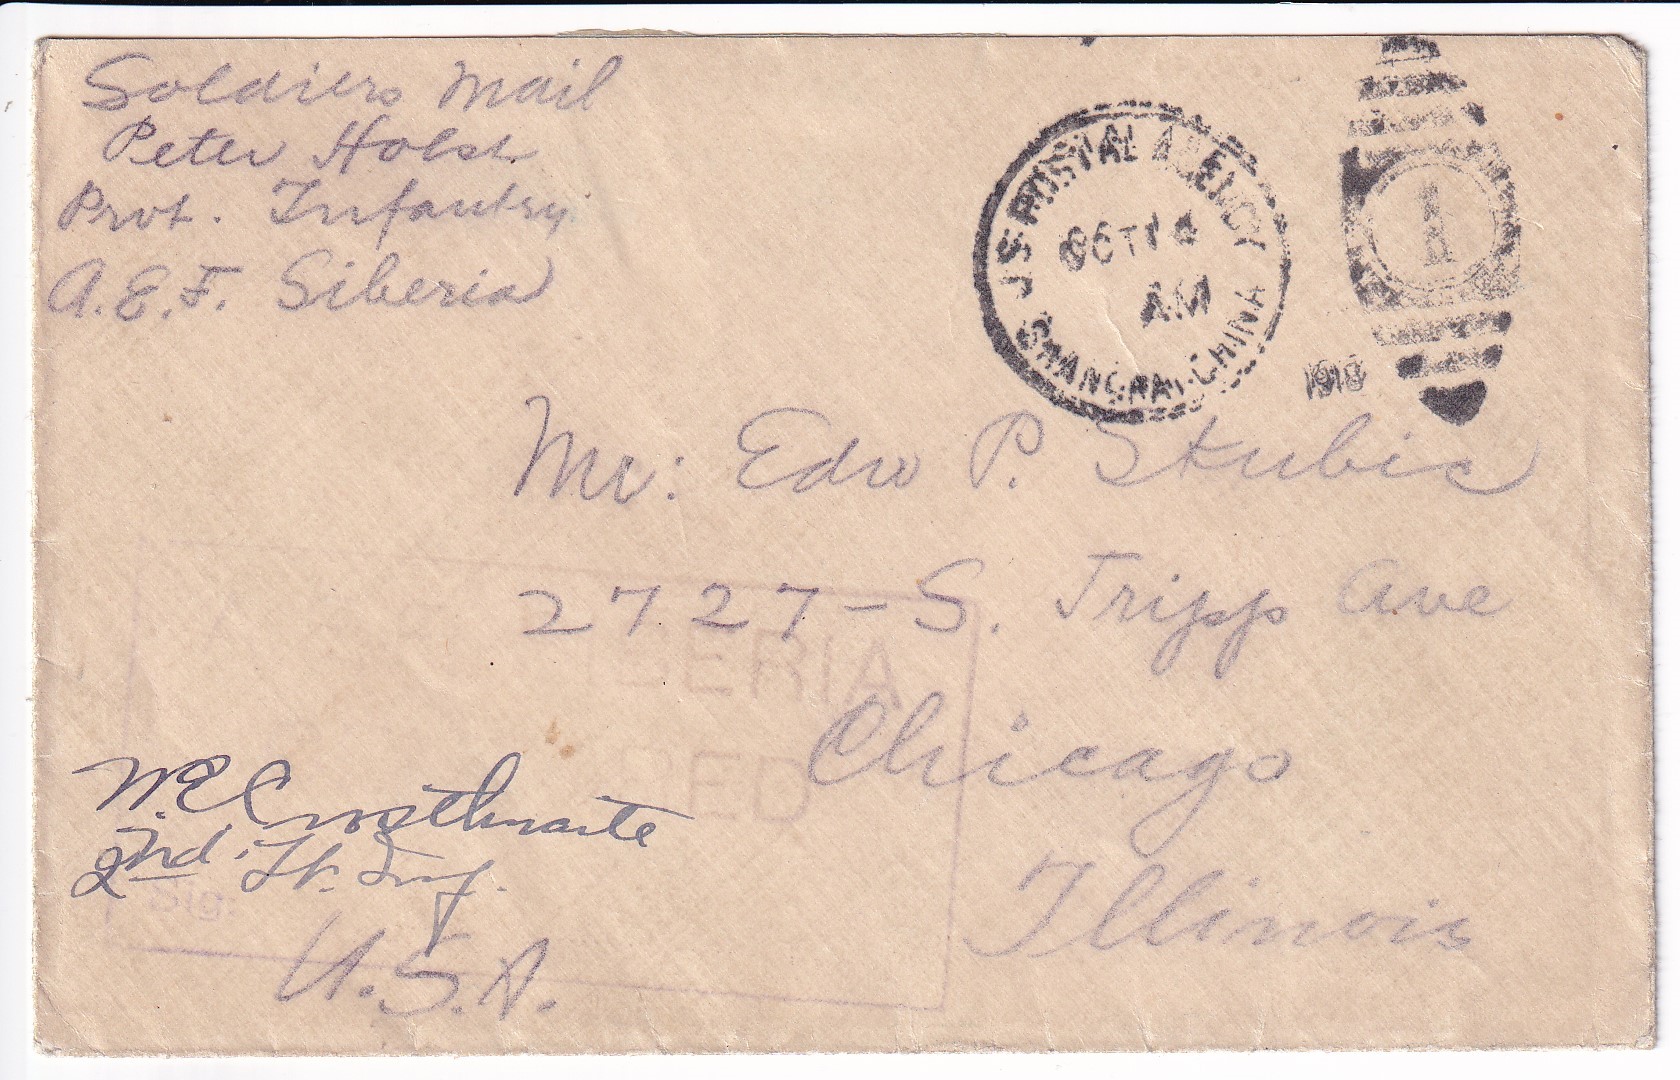 Soldiers Mail
Peter Holst
Prvt. Infantry.
A.E.F. Siberia
U.S. POSTAL AGENCY
OCT 14
AM
SHANGHAI-CHINA
1918
1
Mr: Edw P. Stubic
2727-S. Tripp Ave
Chicago
Illinois
U.S.A.
BERIA
ED
W.E. Crosthwaite
2nd. Lt. Inf.
Sig.